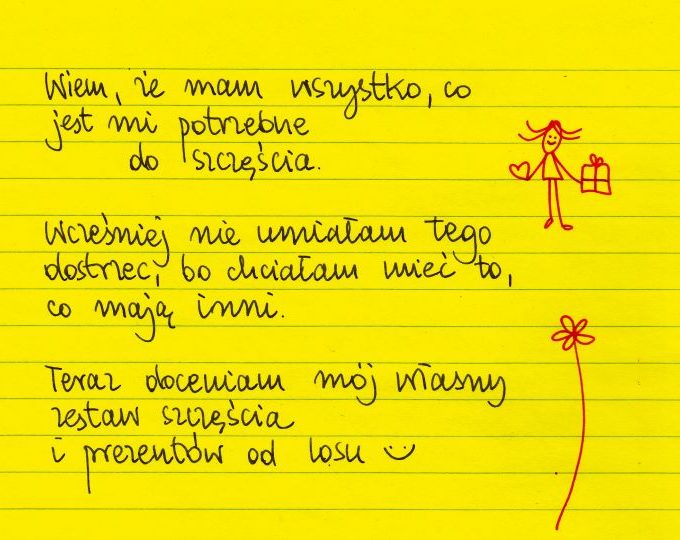 Wiem, że mam wszystko, co
jest mi potrzebne
do szczęścia.
Wcześniej nie umiałam tego
dostrzec, bo chciałam mieć to,
co mają inni.
Teraz doceniam mój własny
zestaw szczęścia
i prezentów od losu :)